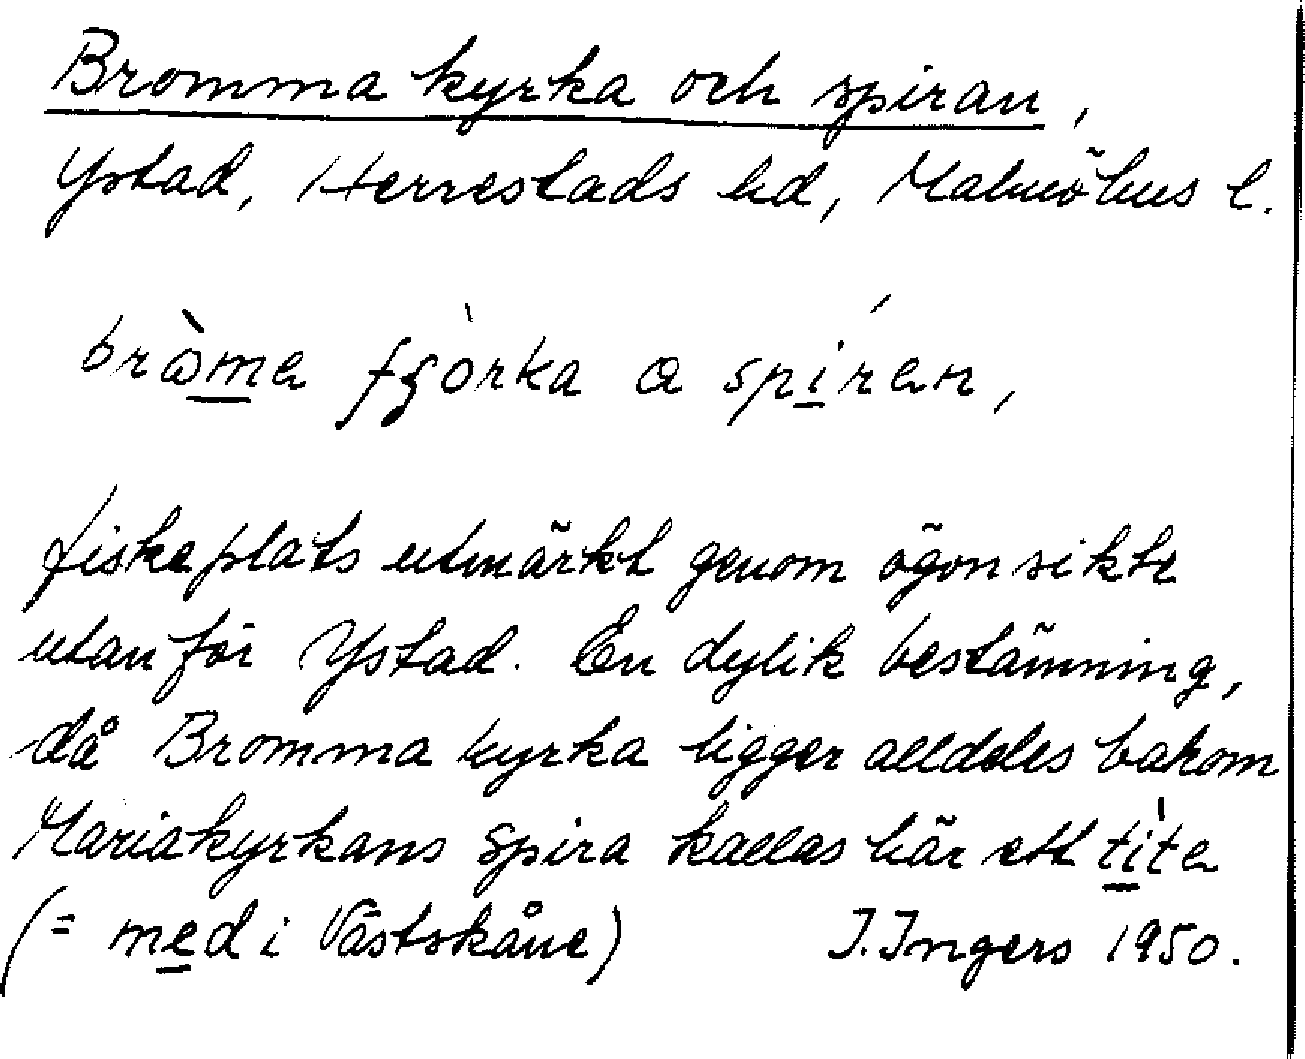 Bromma kyrka och spiran,
Ystad, Herrestads hd, Malmöhus l.
bròme fʒòrka a spíren,
fiskeplats utmärkt genom ögonsikte
utanför Ystad. En dylik bestämning,
då Bromma kyrka ligger alldeles bakom
Mariakyrkans spira kallas här ett tìte
(= med i Västskåne) I. Ingers 1950.